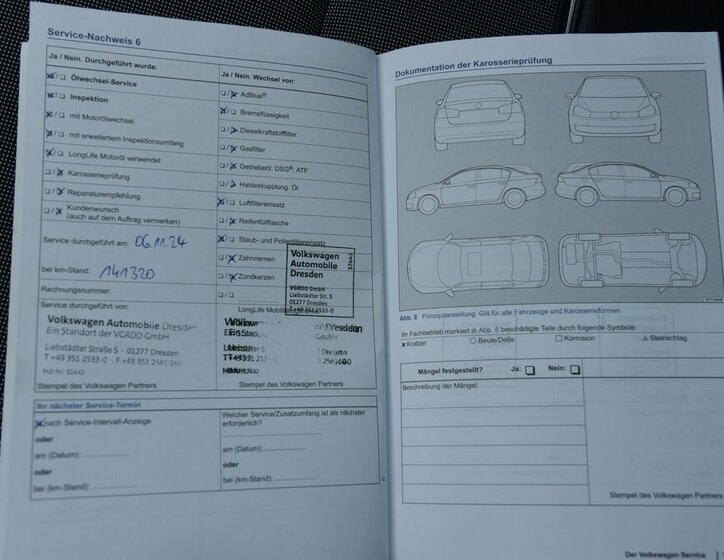 Service-Nachweis 6
Ja / Nein. Durchgeführt wurde:
Ölwechsel-Service
Inspektion
mit Motorölwechsel
mit erweitertem Inspektionsumfang
LongLife Motoröl verwendet
Karosserieprüfung
Reparaturempfehlung
Kundenwunsch
(auch auf dem Auftrag vermerken)
Service durchgeführt am: 06.11.24
bei km-Stand: 141320
Rechnungsnummer:
Service durchgeführt von:
Volkswagen Automobile Dresden
Ein Standort der VGRDD GmbH
Liebstädter Straße 5 · 01277 Dresden
T +49 351 2533-0 · F +49 351 2561-160
Stempel des Volkswagen Partners
Ja / Nein. Wechsel von:
AdBlue®
Bremsflüssigkeit
Dieselkraftstofffilter
Gasfilter
Getriebeöl: DSG®, ATF
Haldexkupplung: Öl
Luftfiltereinsatz
Reifenfüllflasche
Staub- und Pollenfiltereinsatz
Zahnriemen
Zündkerzen
Volkswagen
Automobile
Dresden
VGRDD GmbH
Liebstädter Str. 5
01277 Dresden
T +49 351 2533-0
32442
Stempel des Volkswagen Partners
Ihr nächster Service-Termin
nach Service-Intervall-Anzeige
oder
am (Datum):
oder
bei (km-Stand):
Welcher Service/Zusatzumfang ist als nächster
erforderlich?
am (Datum):
oder
bei (km-Stand):
Dokumentation der Karosserieprüfung
Abb. 8 Prinzipdarstellung. Gilt für alle Fahrzeuge und Karosserieformen.
Ihr Fachbetrieb markiert in Abb. 8 beschädigte Teile durch folgende Symbole:
x Kratzer ○ Beule/Delle □ Korrosion Steinschlag
Mängel festgestellt? Ja: □ Nein: □
Beschreibung der Mängel:
Stempel des Volkswagen Partners
Der Volkswagen Service